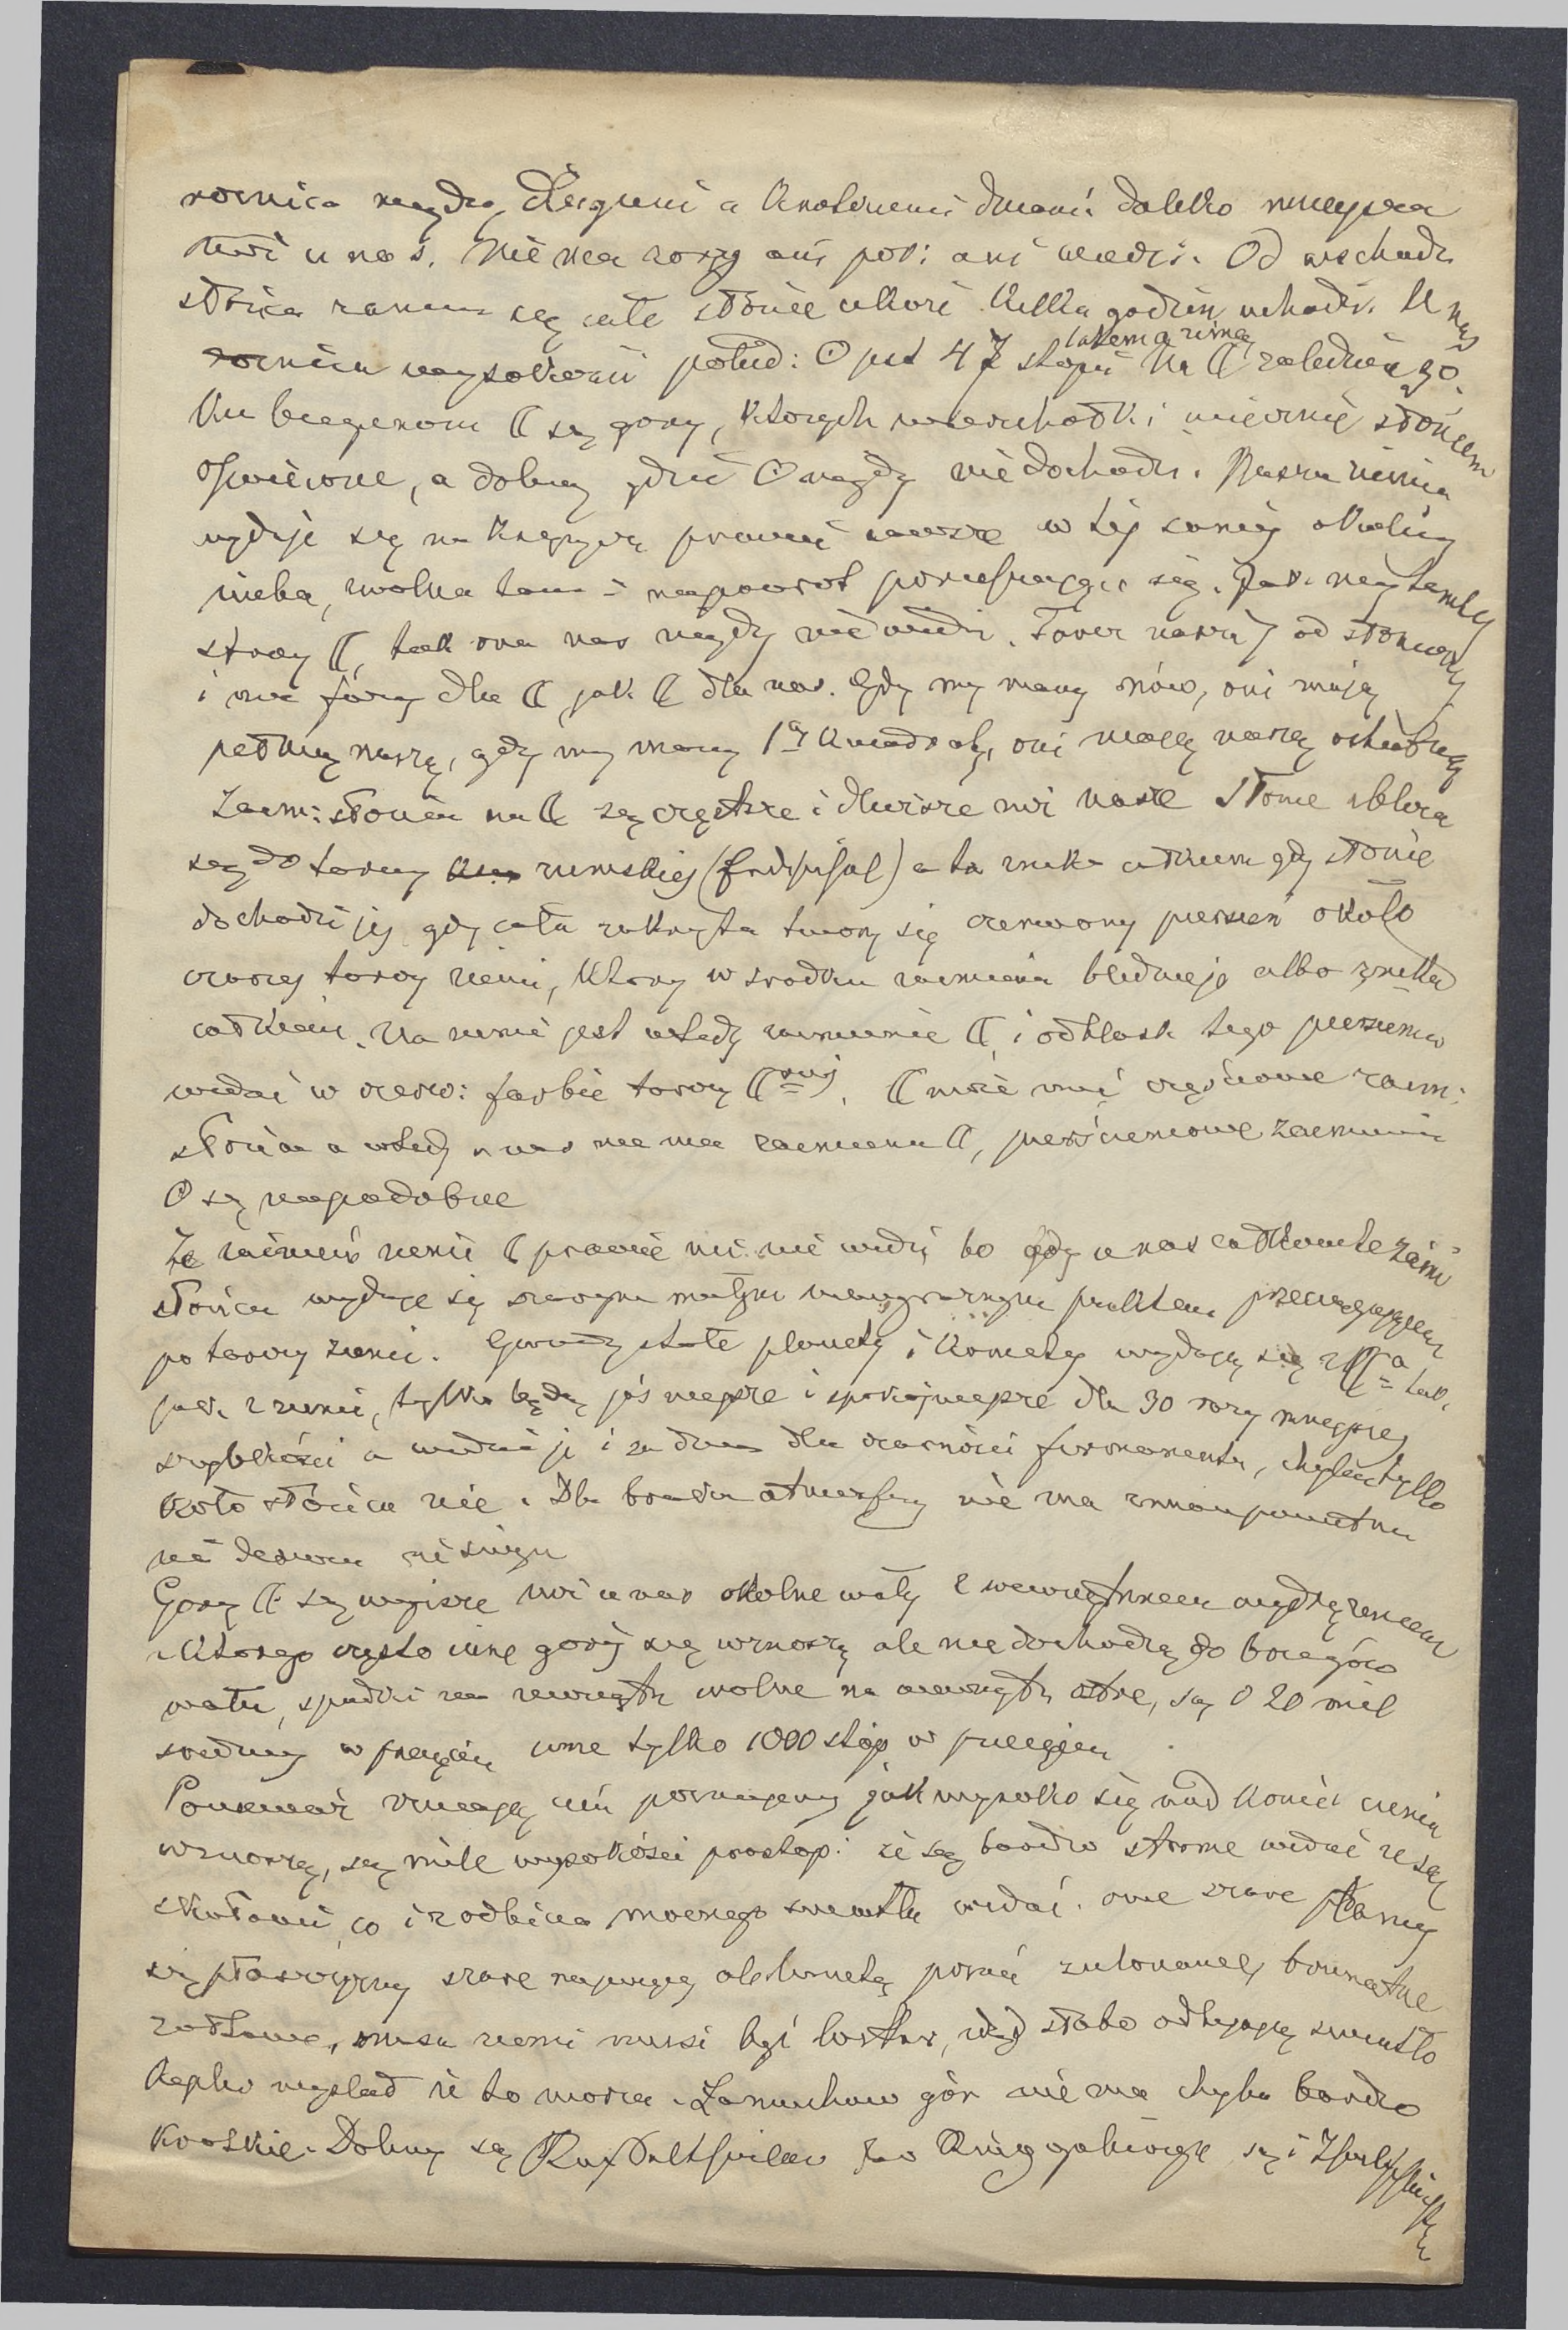 rocnica między długiemi a krotkiemi dniami daleko mniejsza
niż u nas. Nie ma zorzy ani por: ani wiecz:. Od wschodu
słońca zanim się całe słońce ukaże kilka godzin uchodzi. U nas
rocnica wysokości połud: ☉ jest 47 stopni latem a zimą na ☾ zaledwie 30.
Ku biegunom ☾ są gory, ktorych wierzchołki wiecznie słońcem
oświecone, a doliny gdzie ☉ nigdy nie dochodzi. Nasza ziemia
wydaje się na księżycu prawie zawsze w tej samej okolicy
nieba, wolno tam i napowrot poruszając się. Jak my tamtej
strony ☾, tak ona nas nigdy nie widzi. Tarcz naszej od słonecznej
i ma fazy dla ☾ jak ☾ dla nas. Gdy my mamy nów, oni mają
pełnię naszą, gdy my mamy 1ą kwadrę, oni mają naszą ostatnią
Zaćm: słońca na ☾ są częstsze i dłuższe niż nasze słońce zbliża
się do tarczy ziemskiej a ta znika całkiem gdy słońce
dochodzi jej gdy cała zakryta tworzy się czerwony pierścień około
czarnej tarczy ziemi, ktory w srodku zaćmienia blednieje albo znika
całkiem. Na ziemi jest wtedy zaćmienie ☾ i odblask tego pierścienia
widać w czerw: farbie tarczy ☾. ☾ może mieć częściowe zaćm:
słońca a wtedy u nas nie ma zaćmienia ☾, pierścieniowe zaćmienia
☉ są niepodobne
Za zaćmień ziemi ☾ prawie nic nie widzi bo gdy u nas całkowite zaćm:
słońca wydaje się szarym małym niewyraźnym punktem przeciągającym
po tarczy ziemi. Gwiazdy stałe planety i komety wydają się z ☾a tak,
jak z ziemi, tylko będą jaśniejsze i spokojniejsze dla 30 razy mniejszej
szybkości a widać je i za dnia dla czarności firmamentu, chyba tylko
koło słońca nie. Dla braku atmosfery nie ma
ni deszczu ni śniegu
Gory ☾ są wyższe niż u nas okolne wały z wewnętrznem wydrążeniem
z ktorego często inne gory się wznoszą ale nie dochodzą do brzegów
wału, spadki na zewnątrz wolne na wewnątrz ostre, są o 20 mil
srednicy w przecięciu inne tylko 1000 stóp w przecięciu
Ponieważ znając cień poznajemy jak wysoko się nad koniec cienia
wznoszą, są mile wysokości prostop: że są bardzo strome widać że są
skałami, co i z odbicia mocnego swiatła widać. one szare plamy
są płaszczyzny szare
musi być, słabo odbijające swiatło
Kepler myslał że to morza. Łancuchow gór nie ma chyba bardzo
krotkie. Doliny są Ringgebirge są i